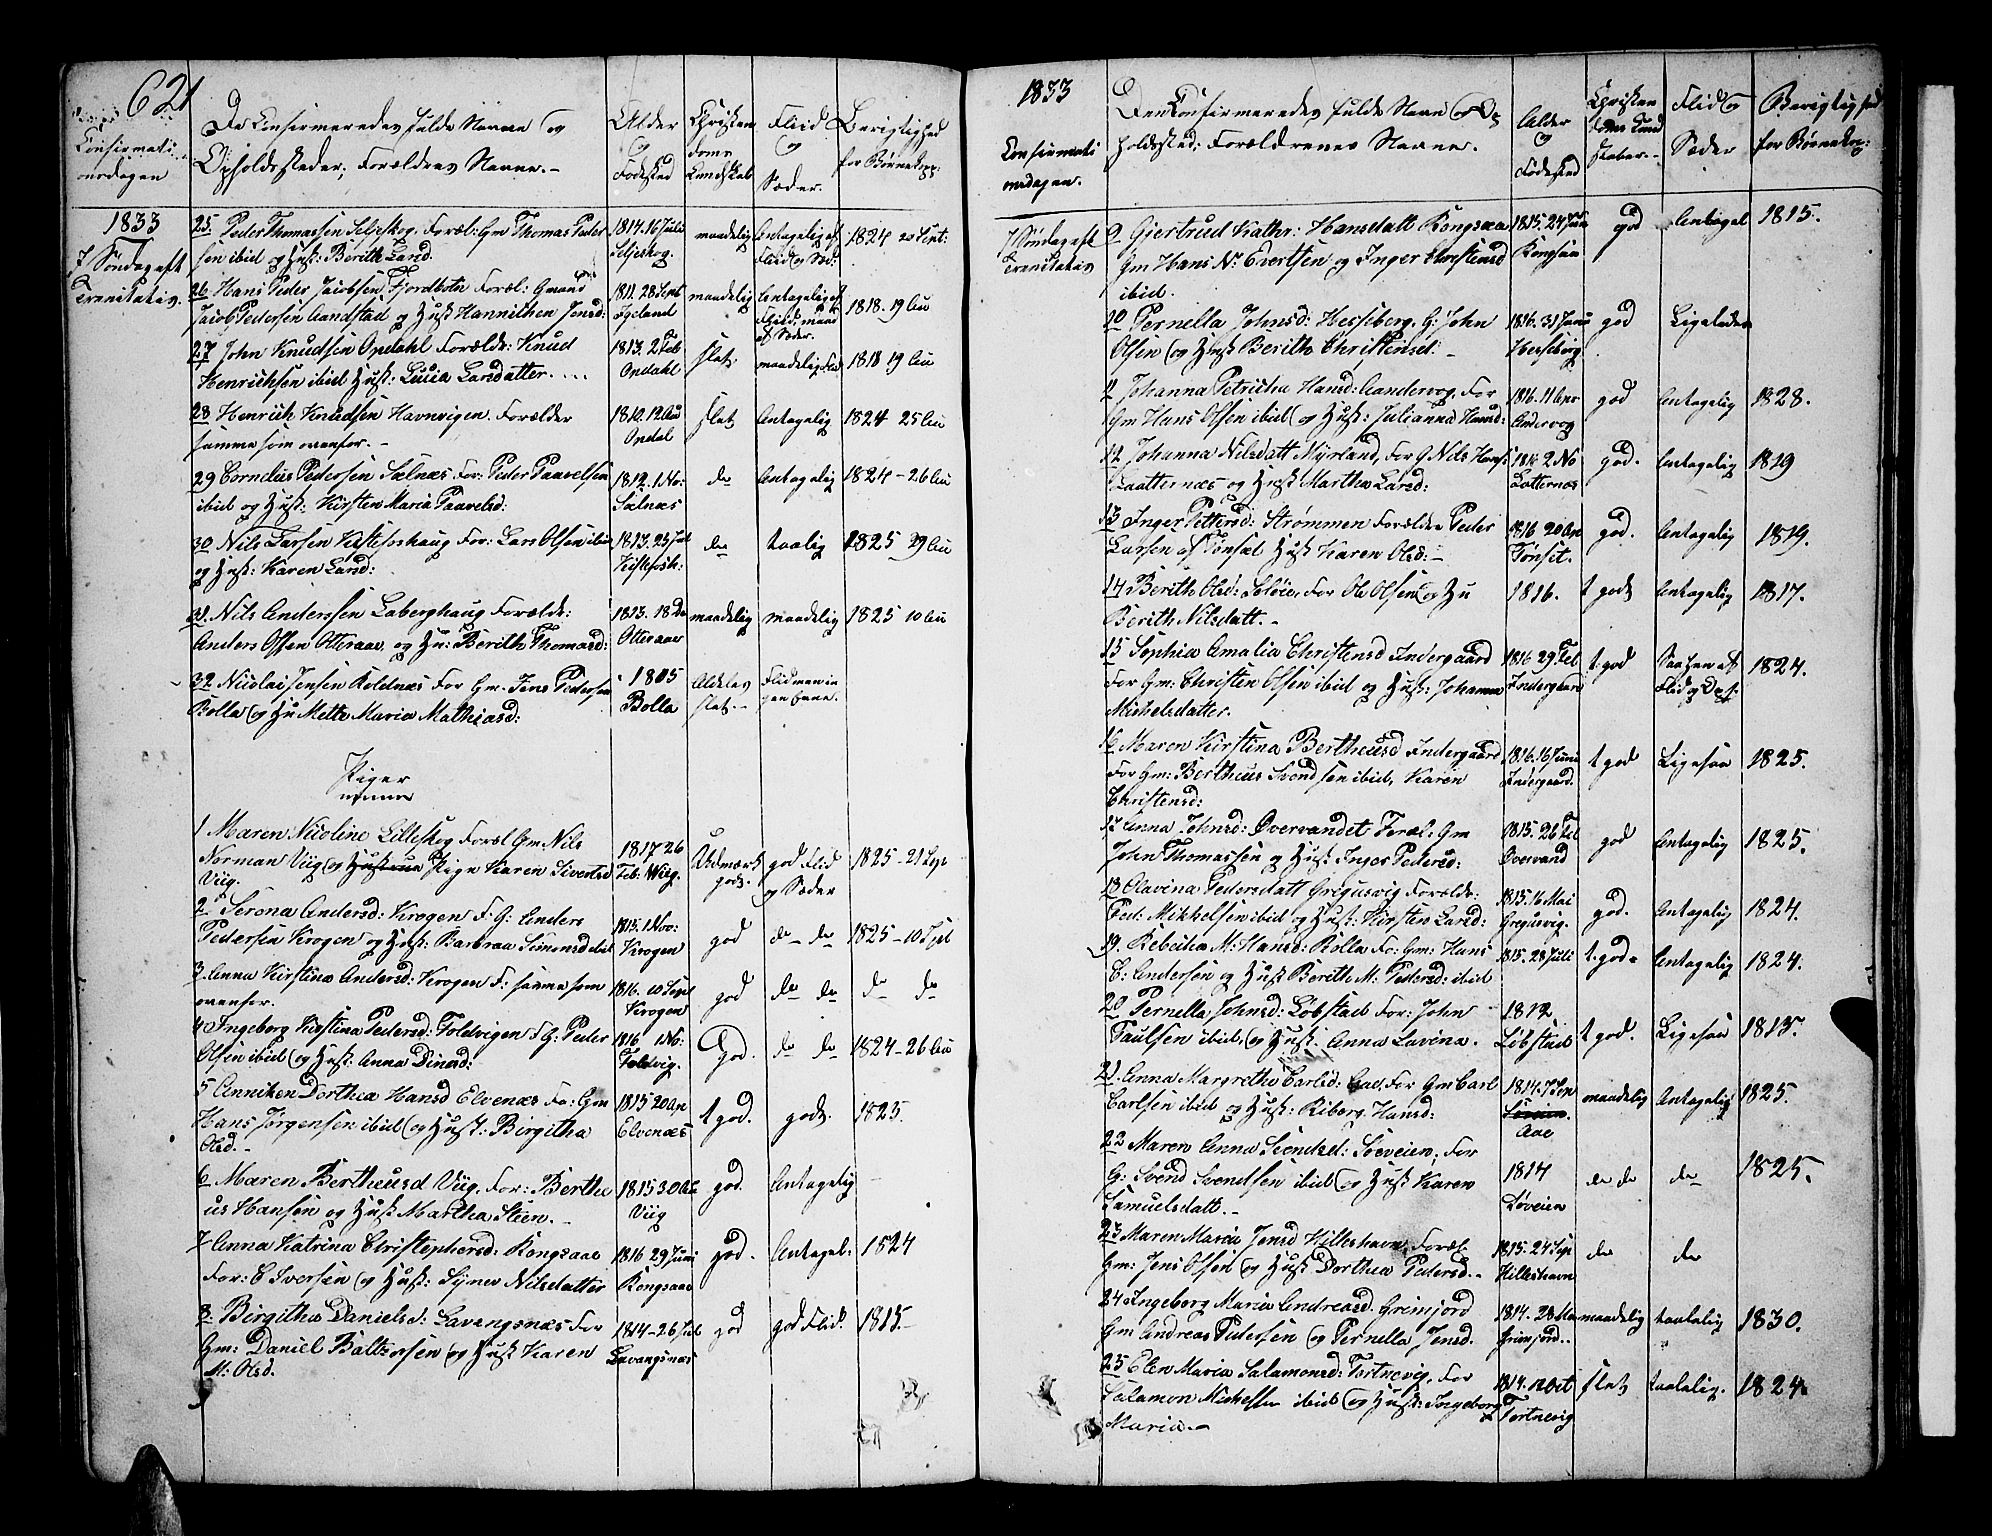 621
Confirmati
onsdagen
De Confirmeredes fulde Navne og
Opholdssteder, Forældres Navne.-
Alder
og
Fødested
Christen
doms
Kundskab
Fliid
og
Sæder.
1833
7 Søndag eft
Trinitatis.
25. Peder Thomassen Seljeskog. Foræl: Gm Thomas Peder
sen ibid og Hust: Berith Land.
1814. 16 Juli
Seljeskog.
maadelig
Antagelig af
Fliid og Sæd:
1824 20 Sept:
26 Hans Peder Jacobsen Fjordbotn Foræl: Gmand
Jacob Pedersen Aandstad og Hust Hannikhen Jensd:
1811. 28 Sept
maadelig
Antagelig af
Fliid, maad
af Sæder.
1818. 19 Au
27 John Knudsen Opdahl Forælde: Knud
Henrichsen ibid Hust: Lucia Larsdatter.
1813. 2 Feb
Opdahl
slet:
maadelig
1818 19 Au
28 Henrich Knudsen Havnvigen. Forælder
samme som ovenfor.-
1810. 12 Au
Opdal
slet
Antagelig
1824 25 Au
29 Cornelius Pedersen Salnæs For: Peder Paavelsen
ibid og Hust: Kirsten Maria Paavelsd:
1812. 1 No:
Salnæs
do
Antagelig
1824-26 Au
30 Nils Larsen Kistefoshaug For: Lars Olsen ibid
og Hust: Karen Larsd:
1813. 25 Jul
Kistefosh:
do
taalig
1825 29 Au
31. Nils Anderssen Laberghaug Forælde:
Anders Olsen Otteraae og Hu: Berith Thomasd:
1813. 18 De
Otteraae
maadelig
maadelig
1825 10 Au
32 Nicolai Jensen Roldnæs For Gm. Jens Pedersen
Rolla og Hu Mette Maria Mathiasd:
1805
Rolla
Aldeles
slet.-
Flid men in
gen Evne.
Piger
1 Maren Nicoline Lilleskog Foræl Gm Nils
Norman Viig og Hustrue Pige Karen Sivertsd
Viig.
1817 26
Feb: Wiig.
Udmærk
godt.
god Flid
og Sæder
1825-21 Sep
2 Serona Andersd: Krogen F: G: Anders
Pedersen Krogen og Hust: Barbraa Simonsd ibid
1815. 1 Nov:
Krogen
god
do do
1825-10 Sept
3 Anna Kirstina Andersd: Krogen F: samme som
ovenfor.
1816. 10 Sept
Krogen
god
do do
do do
4 Ingeborg Kirstina Pedersd: Foldvigen F G: Peder
Olsen ibid og Hust: Anna Dinesd:
1816 1 No:
Foldvig.
God.
do do
1824-26 Au
5 Anniken Dorthea Hansd Elvenæs For: Gm
Hans Jørgensen ibid og Hust: Birgitha
Olsd.-
1815 20 Ap
Elvenæs
t god.
godt.
1825.
6 Maren Bertheusd Viig. For: Berthe
us Hansen og Hust Martha Steen.-
1815 30
Viig
god
Antagelig
7 Anna Katrina Christophersd: Kongsaae
For: C Iversen og Hust: Synev Nilsdatter
1816 29 Juni
Kongsaae
god.
Antagel:
1824
8 Birgitha Danielsd: Lavangsnæs For
Gm: Daniel Baltzersen og Hust Karen
M: Olsd.
1814-26 Jul
Lavangsnæs
god
god Flid.
1815-
1833
Confirmati
onsdagen.
Den Confirmeredes fulde Navn og Op
holdssted; Forældrenes Navne.
Alder
og
Fødested
Christen
doms Kund
skaber.-
Flid og
Sæder
7 Søndag eft
Trinitatis
9 Gjertrud Kathr: Hansdatt Kongsaae
Gm Hans N: Evertsen og Inger Christensd
ibid.
1815. 24 Jan
Kongsaae
god
Antagel
1815.
10 Pernella Johnsd: Hesseberg. G: John
Olsen og Hust Berith Christensd:-
1816. 31 Janu
Hesseberg
god
Ligeledes
11 Johanna Petricha Hansd: Aandervog, For
Gm Hans Olsen ibid og Hust: Julianna Hansd:
1816. 11 Apr
Andervog
god
Antagelig
1828.
12 Johanna Nilsdatt Myrland, For G Nils Hans:
Laatternæs og Hust Martha Larsd:
2 No
Latternæs
god.
Antagelig
1819
13 Inger Pettersd: Strømmen Forældre Peder
Larsen af Tønset Hust Karen Olsd:-
1816 20 Ap
Tønset.
god.
Antagelig
1819.
14 Berith Olsd: Soløie, For Ole Olsen og Hu
Berith Nilsdatt.-
1816.
t godt
Antagelig
1817.
15 Sophia Amalia Christensd Indergaard
For Gm: Christen Olsen ibid og Hust: Johanna
Michelsdatter.
1816 29 Feb
Indergaard
t: god
1824.
16 Maren Kirstina Bertheusd Indergaard
For Gm: Bertheus Svendsen ibid, Karen
Christensd:
1816. 16 Juni
Indergaard.
t god
Ligesaa
1825.
17 Anna Johnsd: Øvervandet Foræl: Gm
John Thomassen og Hust Inger Pedersd:
1815. 26 Feb
Øvervand
god
Antagelig
1825.
18 Olavina Pedersdatt Gregusvig Forælde:
Ped: Mikkelsen ibid og Hust: Kirsten Larsd:
1815. 16 Mai
Gregusvig.
god.
Antagelig
1824.
19. Rebecha M: Hansd: Rolla For: Gm: Hans
C: Andersen og Hust Berith M: Pedersd: ibid
1815. 28 Juli
t: god
Antagelig
1824.
20 Pernella Johnsd: Løbstad For: John
Paulsen ibid, og Hust: Anna Lavina.
1812
Løbstad
t god.
Ligesaa
1815.
21. Anna Margretha Carlsd: Aae, For Gm Carl
Carlsen ibid og Hust: Riborg Hansd:
1814. 7 Sep
Aae
maadelig
Antagelig
1825.
22 Maren Anna Svendsd: Søeveien, For
G: Svend Svendsen ibid og Hust Karen
Samuelsdatt.-
1814
Søveien
do do
do
1825.
23 Maren Maria Jensd Killeshavn, Foræl
Gm: Jens Olsen og Hust Dorthea Pedersd.-
1815. 24 Sep
Killeshavn
do
do
24 Ingeborg Maria Andreasd. Grimjord
Gm Andreas Pedersen og Pernella Jensd.
1814. 28 Ma
Grimjord.-
maadelig
taalelig
1830.
25 Elen Maria Salamonsd: Tortnevig, For
Salamon Mickelsen ibid og Hust: Ingeborg
Maria.-
1814. Oct
Tortnevig
slet
taalelig.
1824